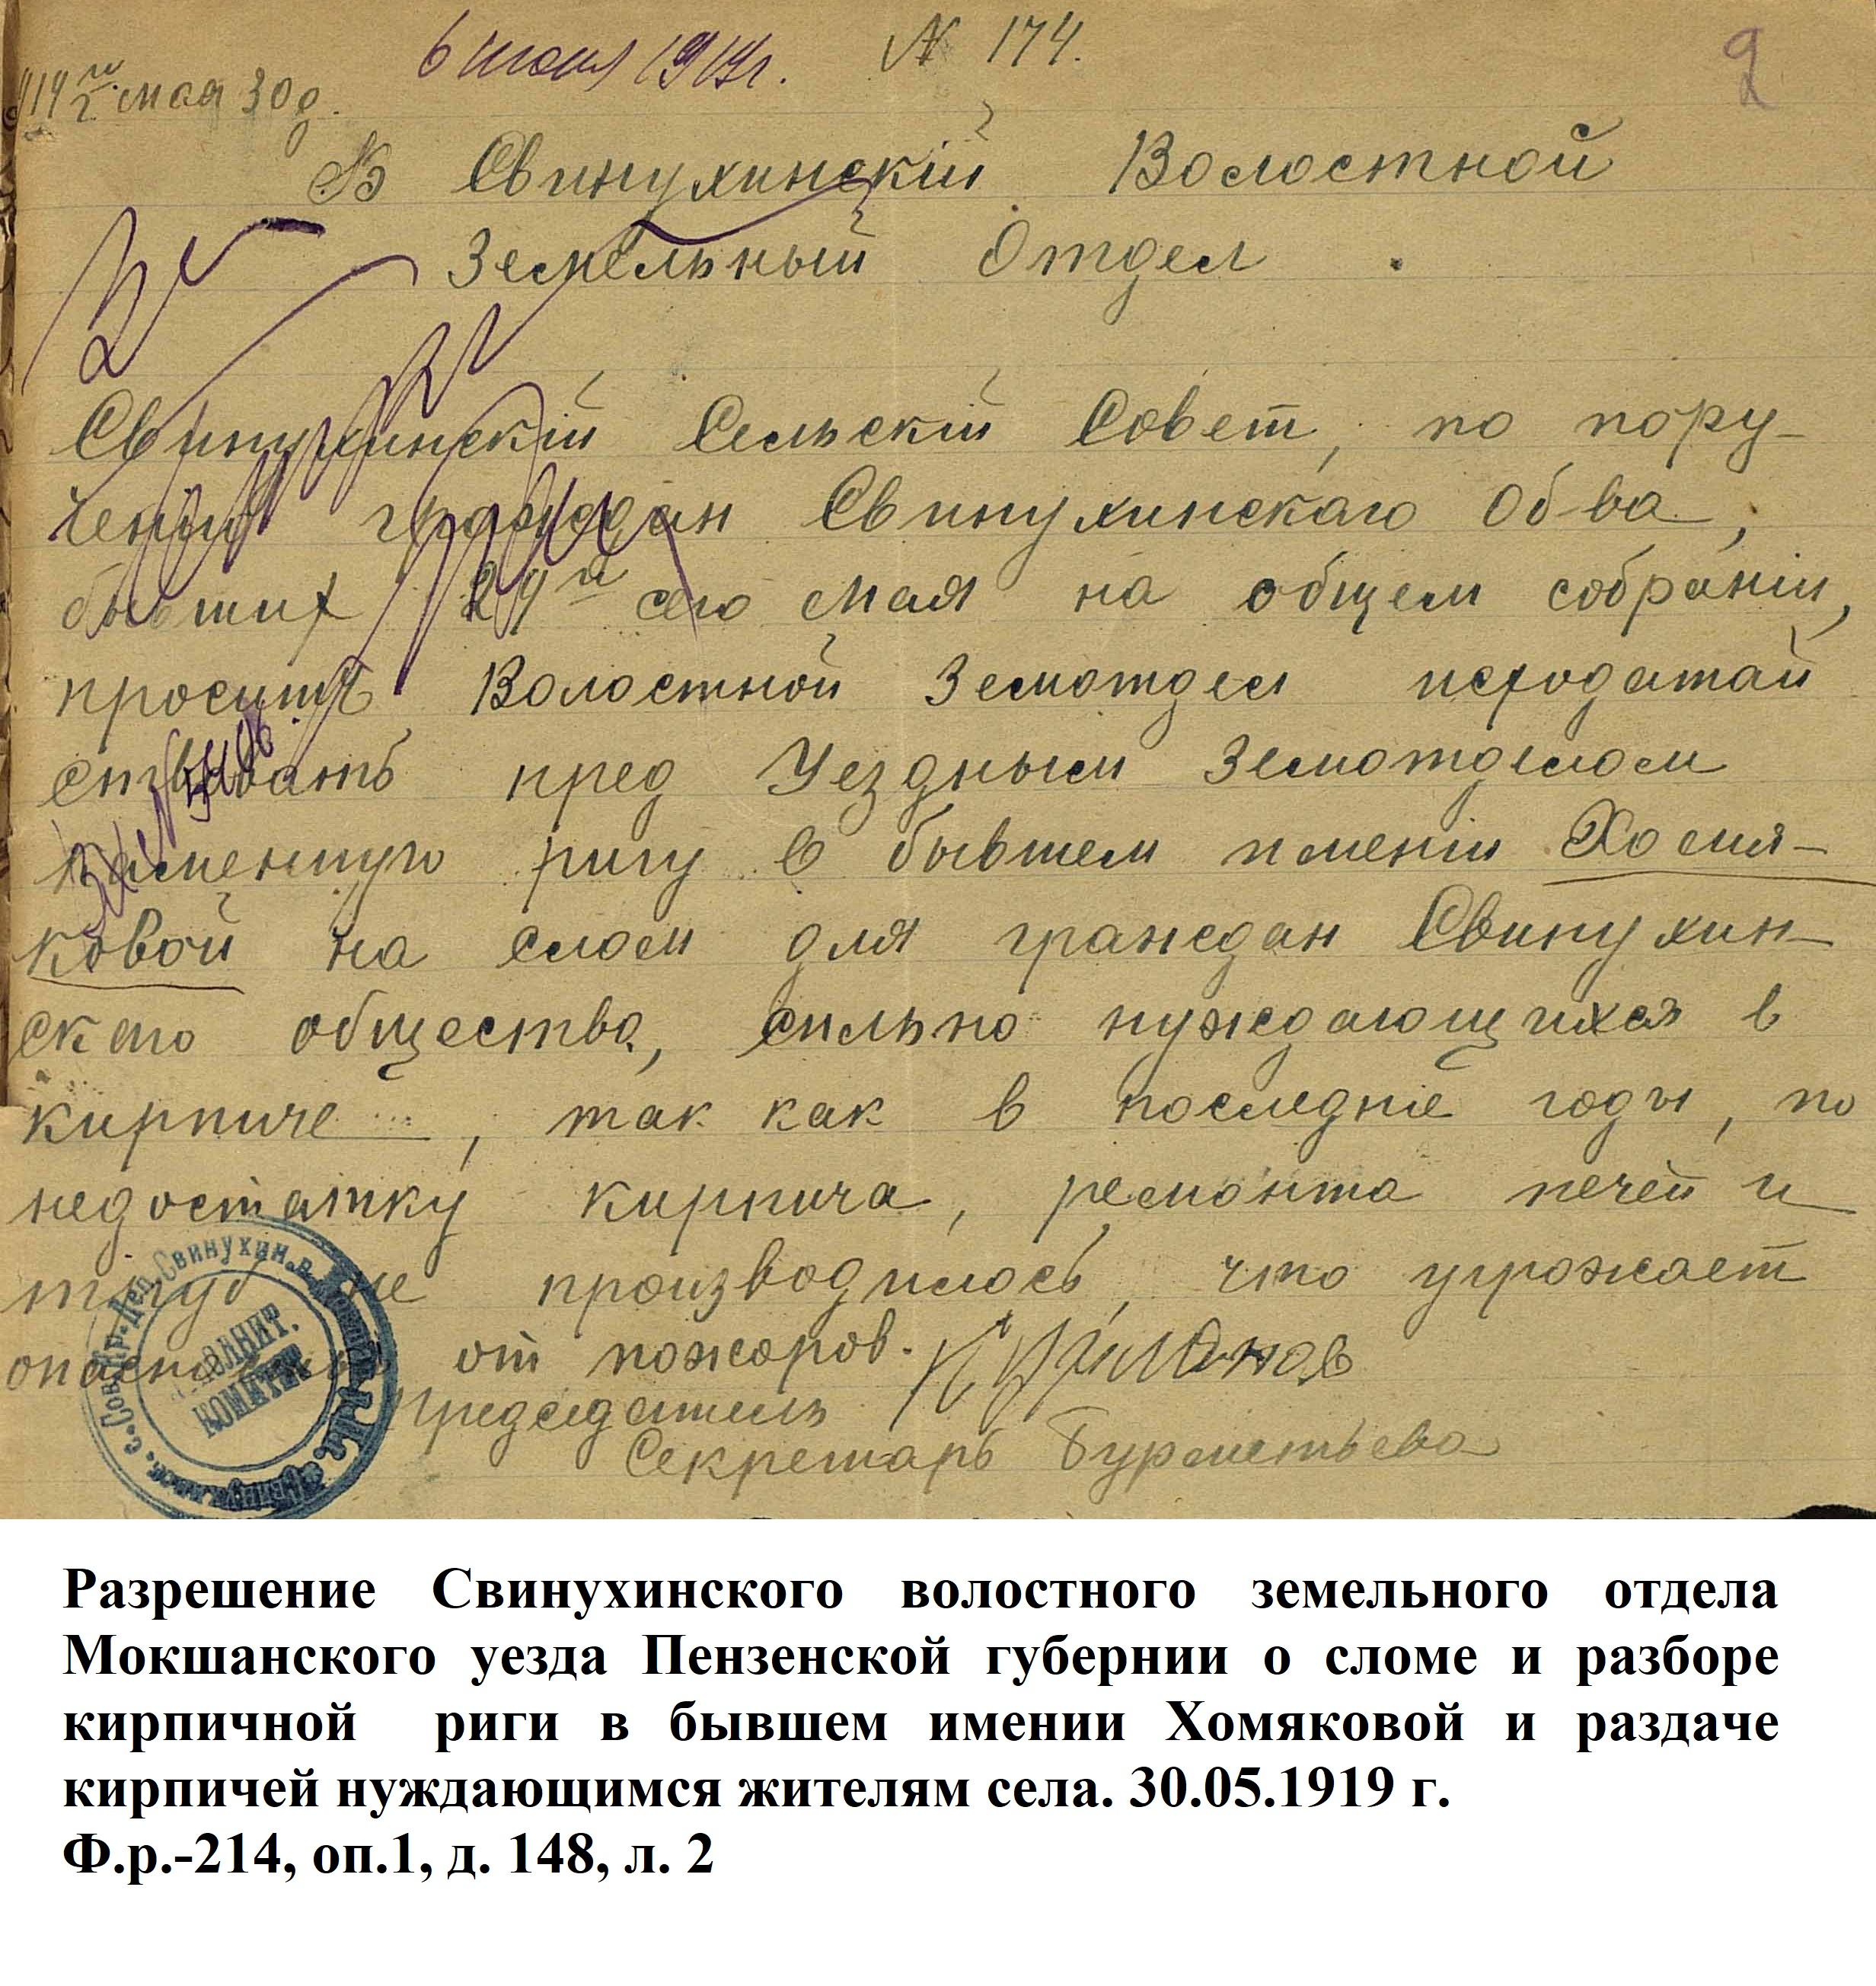 6 июня 1919 г. № 174.
2
мая 30 д.
В Свинухинскій Волостной
Земельный Отдел
Свинухинскій Сельскій Совет, по пору-
ченію граждан Свинухинскаго Об-ва,
бывших 29го сего мая на общем собраніи,
просить Волостной Земотдел исходатай
ствовать пред Уездным Земотделом
каменную ригу в бывшем имѣніи Хомя-
ковой на слом для граждан Свинухин-
скаго общества, сильно нуждающихся в
кирпиче, так как в последніе годы, по
недостатку кирпича, ремонта печей и
труб не производилось, что угрожает
опасностью от пожаров.
Председатель
Секретарь Бурметьева
Свинухин. в.
КОМИТЕТ
Разрешение Свинухинского волостного земельного отдела
Мокшанского уезда Пензенской губернии о сломе и разборе
кирпичной риги в бывшем имении Хомяковой и раздаче
кирпичей нуждающимся жителям села. 30.05.1919 г.
Ф.р.-214, оп.1, д. 148, л. 2